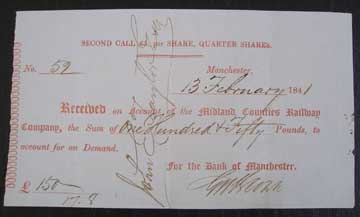 SECOND CALL per SHARE, QUARTER SHARES.
No. 59
Manchester,
13 February 1841
Received on Account of the Midland Counties Railway
Company, the Sum of One Hundred & Fifty Pounds, to
account for on Demand.
For the Bank of Manchester.
£ 150
John Taylor